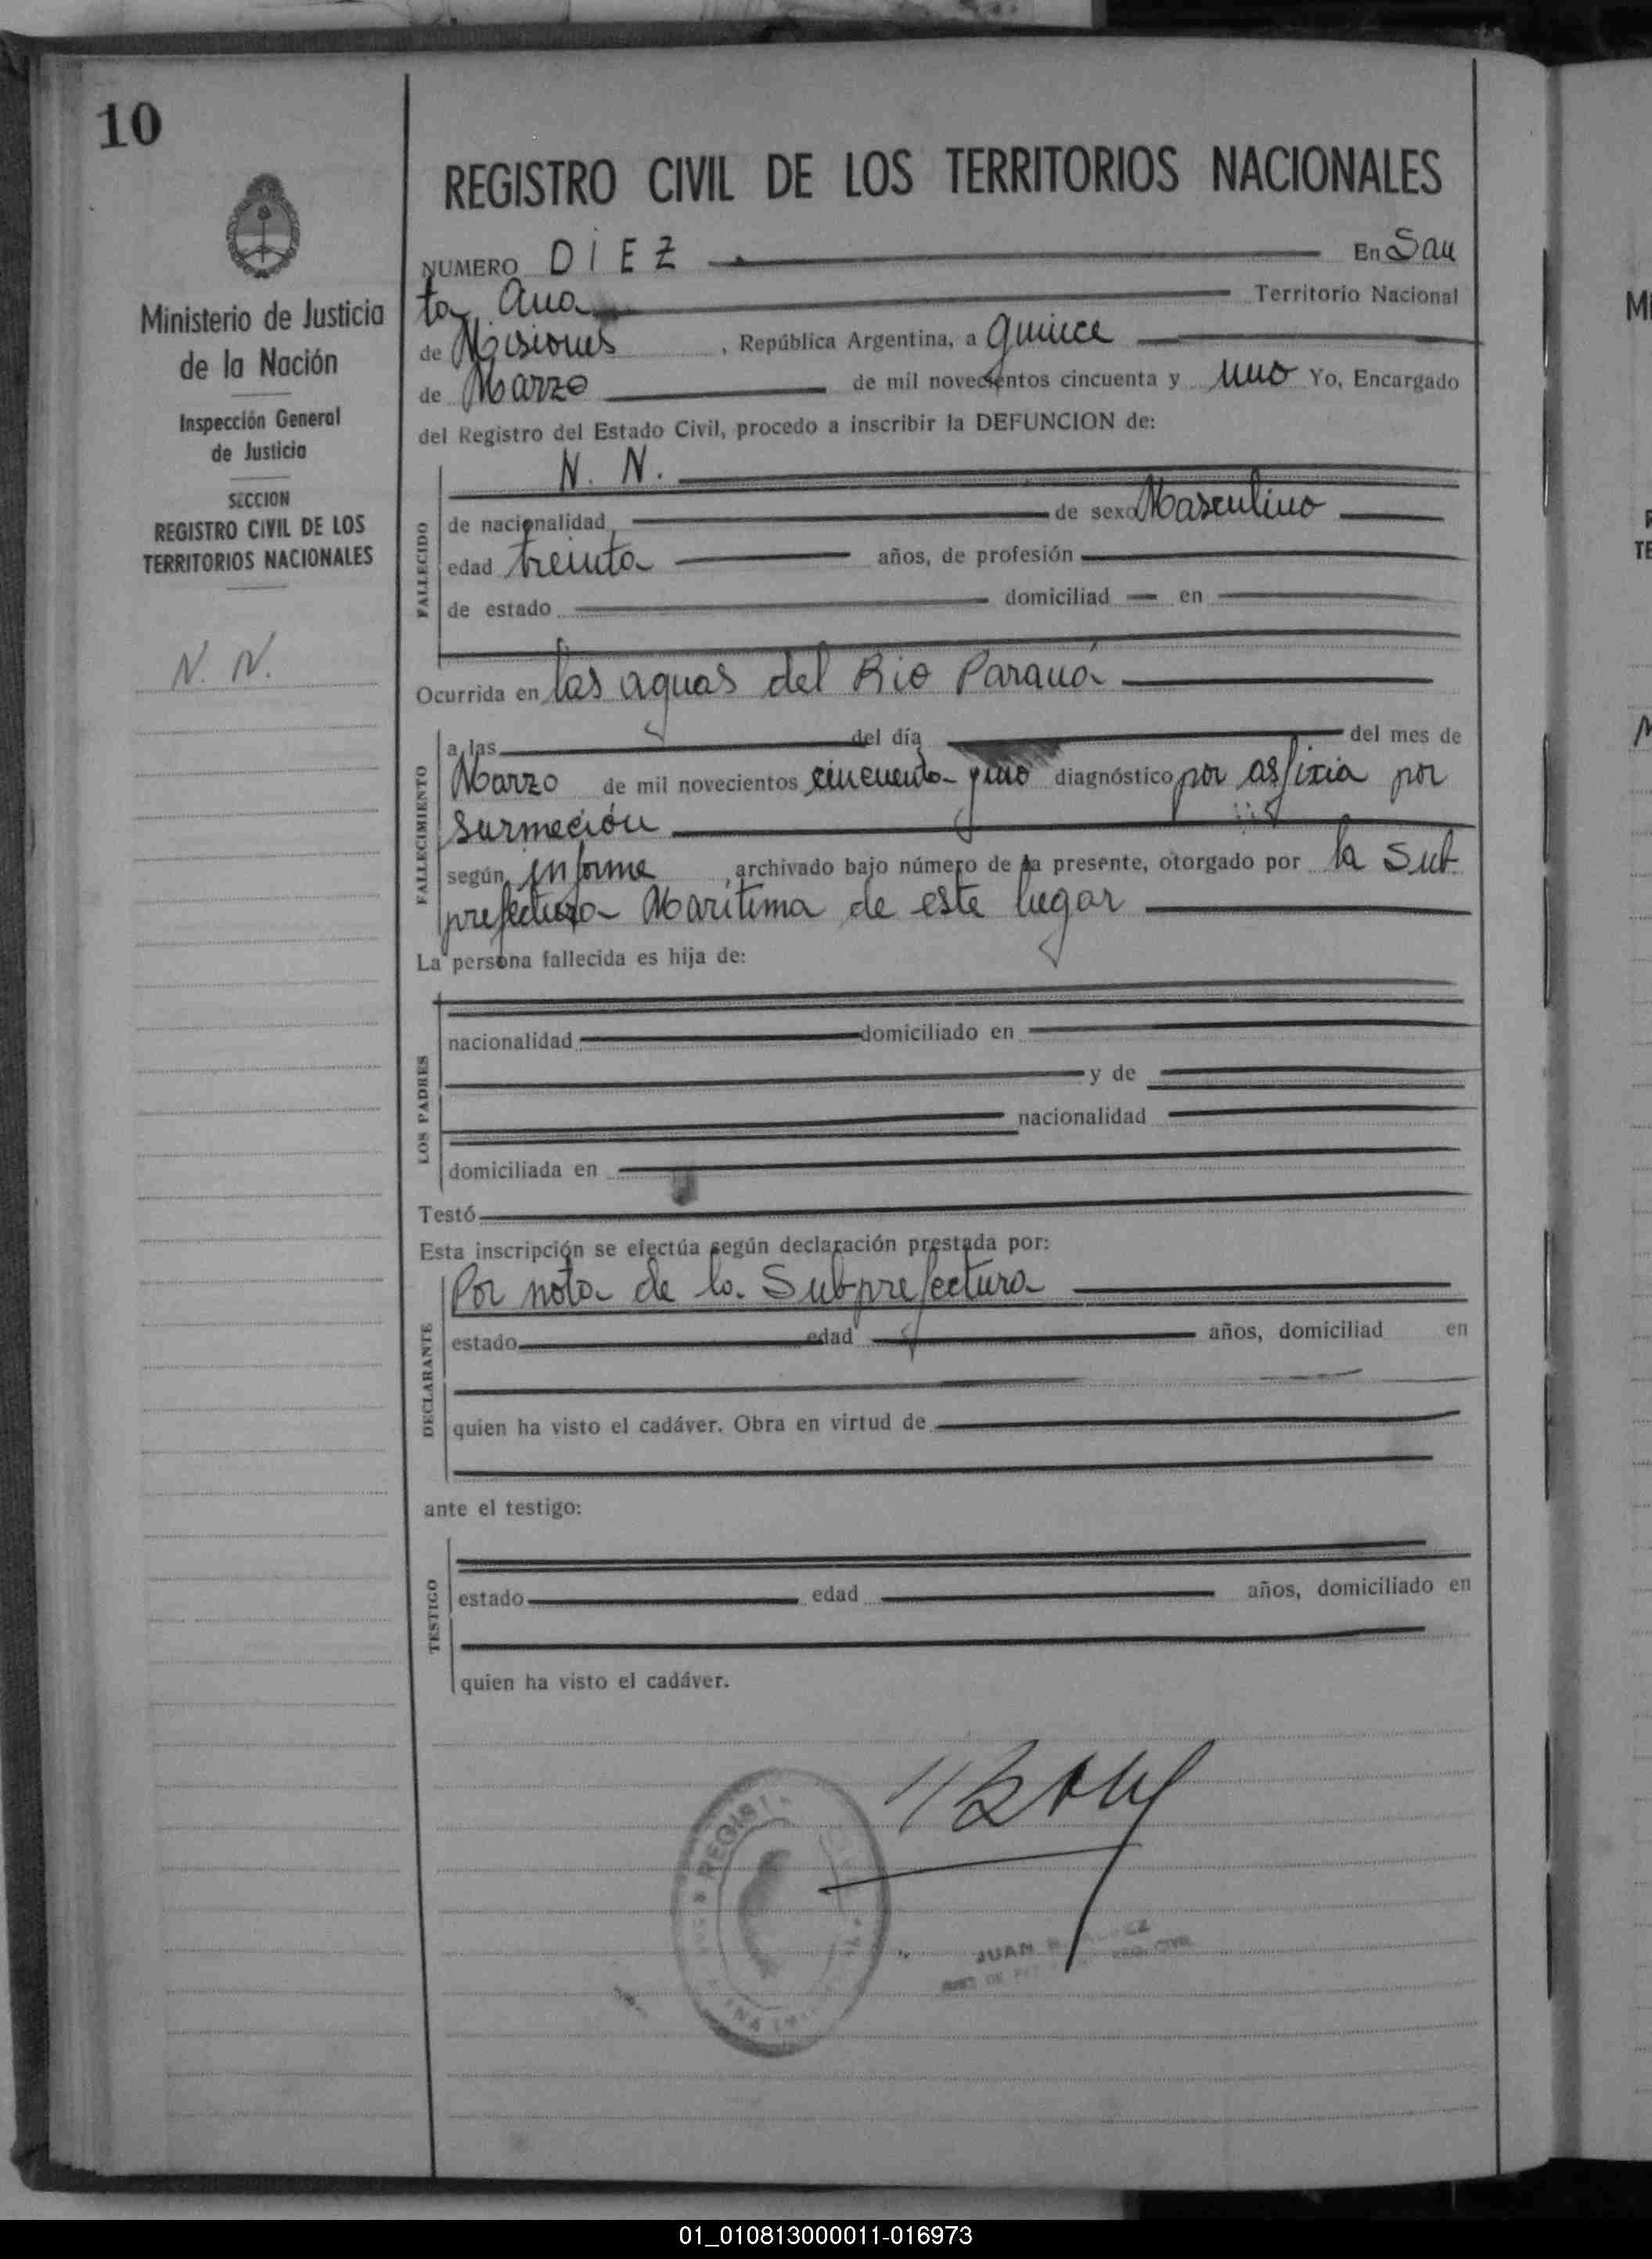 10
Ministerio de Justicia
de la Nación
Inspección General
de Justicia
SECCION
REGISTRO CIVIL DE LOS
TERRITORIOS NACIONALES
N. N.
REGISTRO CIVIL DE LOS TERRITORIOS NACIONALES
NUMERO DIEZ En San
ta Ana Territorio Nacional
de Misiones , República Argentina, a quince
de Marzo de mil novecientos cincuenta y uno Yo, Encargado
del Registro del Estado Civil, procedo a inscribir la DEFUNCION de:
N. N.
FALLECIDO
de nacionalidad de sexo Masculino
edad treinta años, de profesión
de estado domiciliad en
Ocurrida en las aguas del Rio Paraná
FALLECIMIENTO
a las del día del mes de
Marzo de mil novecientos cincuenta y uno diagnóstico por asfixia por
surmeción
según informe , archivado bajo número de la presente, otorgado por la Sub
prefectura Marítima de este lugar
La persona fallecida es hija de:
LOS PADRES
nacionalidad domiciliado en
y de
nacionalidad
domiciliada en
Testó
Esta inscripción se efectúa según declaración prestada por:
DECLARANTE
Por nota de la Subprefectura
estado edad años, domiciliad en
quien ha visto el cadáver. Obra en virtud de
ante el testigo:
TESTIGO
estado edad años, domiciliado en
quien ha visto el cadáver.
REGIST
JUAN
01_010813000011-016973